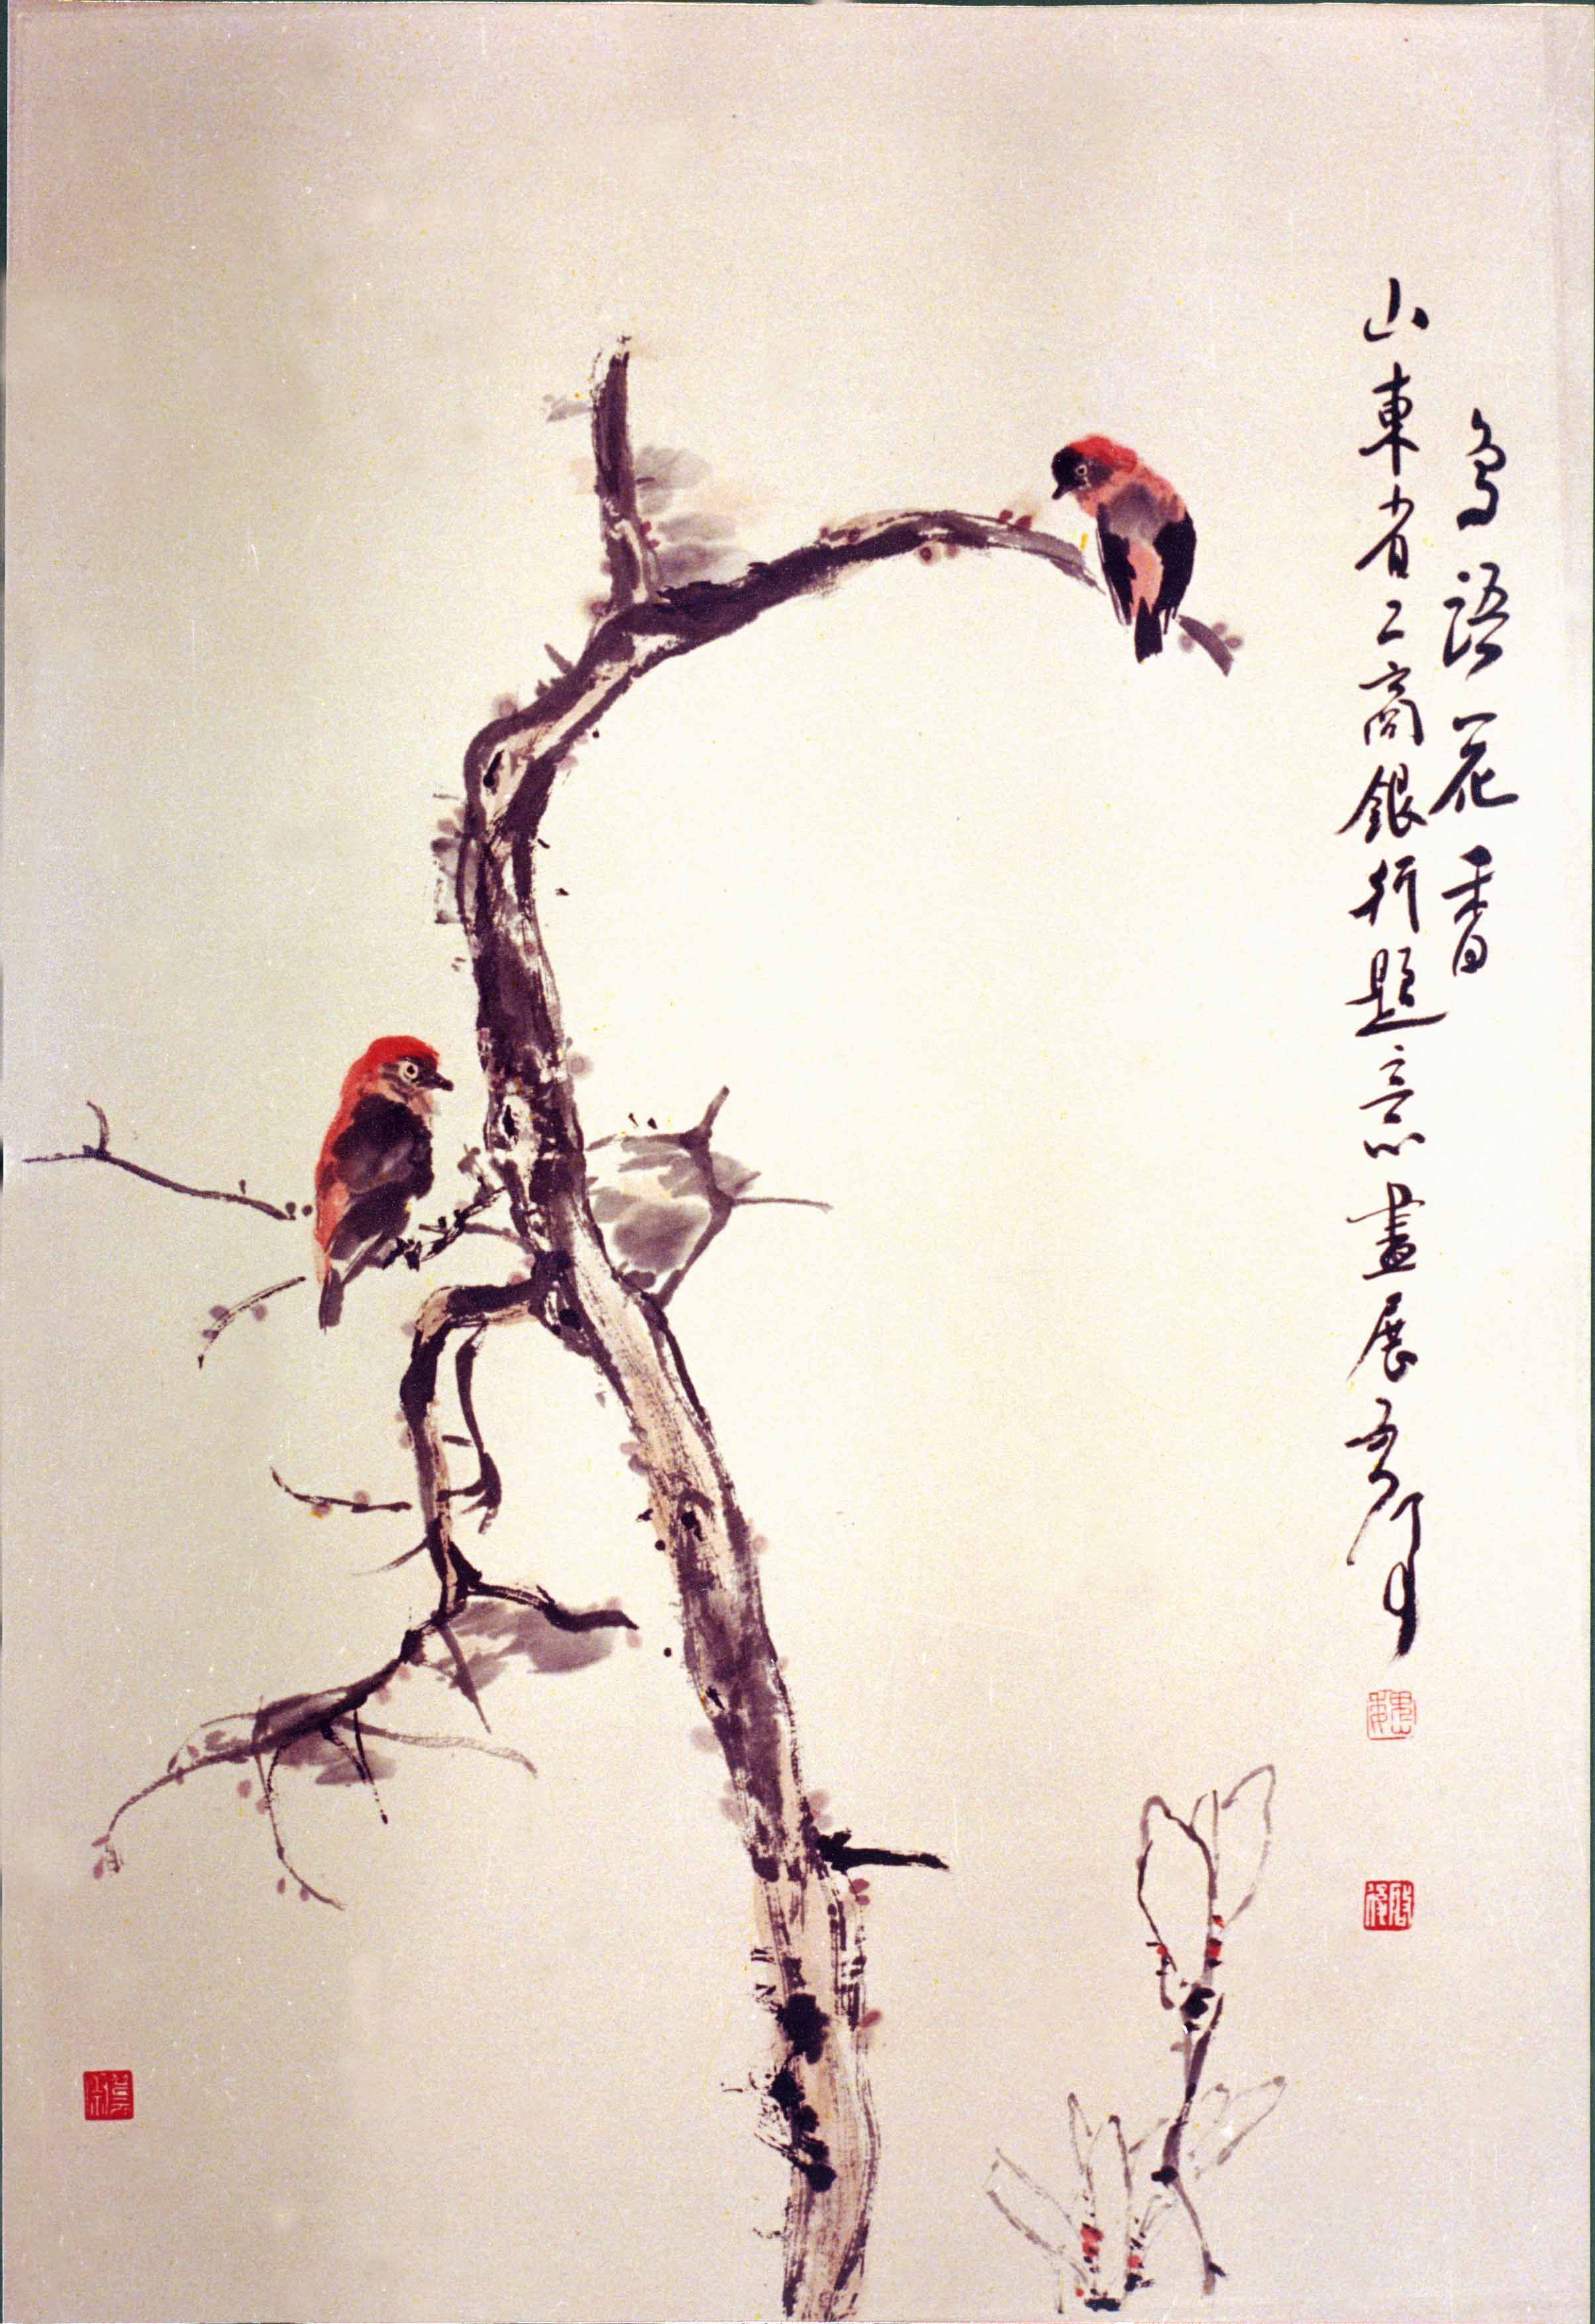 鳥語花香
山東省工商銀行題意畫展